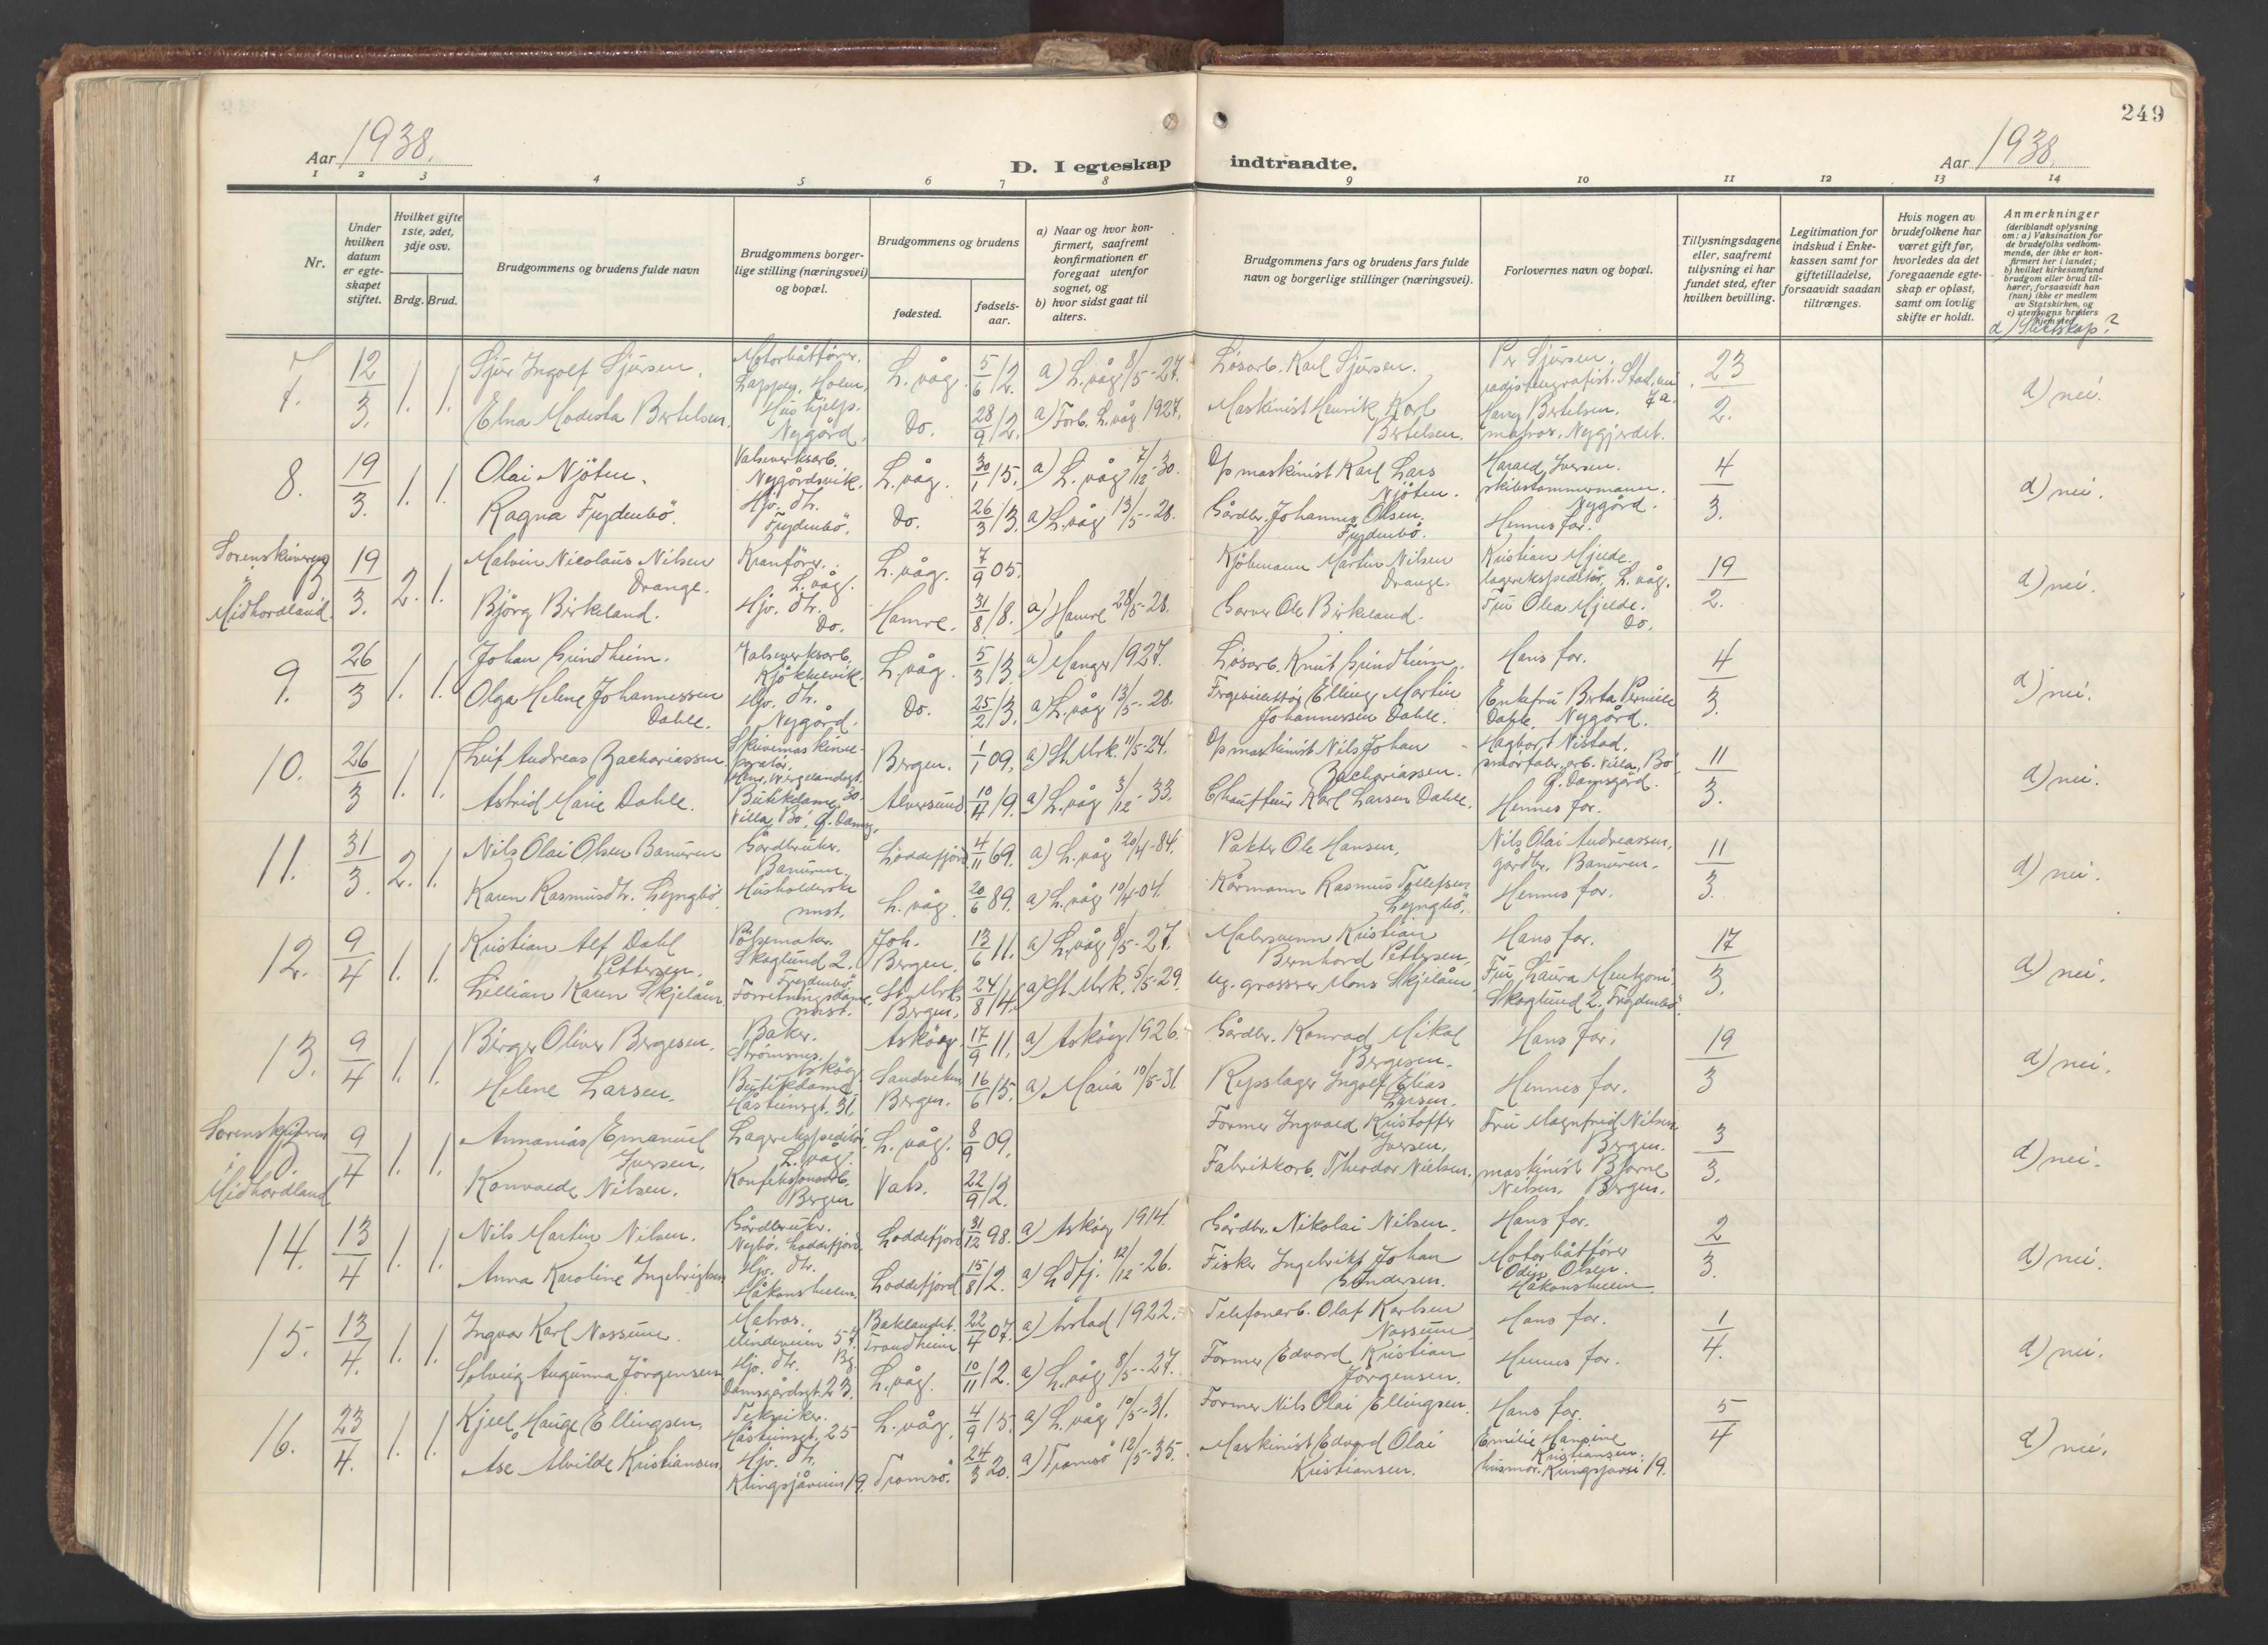 249
Aar 1938.
D. I egteskap indtraadte.
Aar 1938.
1 2 3 4 5 6 7 8 9 10 11 12 13 14
Nr.
Under hvilken datum er egteskapet stiftet.
Hvilket gifte 1ste, 2det, 3dje osv.
Brdg. Brud.
Brudgommens og brudens fulde navn
Brudgommens borgerlige stilling (næringsvei) og bopæl.
Brudgommens og brudens
fødested.
fødselsaar.
a) Naar og hvor konfirmert, saafremt konfirmationen er foregaat utenfor sognet, og
b) hvor sidst gaat til alters.
Brudgommens fars og brudens fars fulde navn og borgerlige stillinger (næringsvei).
Forlovernes navn og bopæl.
Tillysningsdagene eller, saafremt tillysning ei har fundet sted, efter hvilken bevilling.
Legitimation for indskud i Enkekassen samt for giftetilladelse, forsaavidt saadan tiltrænges.
Hvis nogen av brudefolkene har været gift før, hvorledes da det foregaaende egteskap er opløst, samt om lovlig skifte er holdt.
Anmerkninger (deriblandt oplysning om: a) Vaksination for de brudefolks vedkommende, der ikke er konfirmert her i landet; b) hvilket kirkesamfund brudgom eller brud tilhører, forsaavidt han (hun) ikke er medlem av Statskirken, og c) utensogns bruders hjemsted.
d) Slektskap?
7. 12/3. 1. 1. Sjur Ingolf Sjursen. Motorbåtfører. Lappen, Holm. L.våg. 5/6 12. a) L.våg 8/5-27. Løsarb. Karl Sjursen. Per Sjursen. 23/2. d) nei.
Elna Modesta Bertelsen. Hushjelp. Nygård. Do. 28/9 12. a) Forb. L.våg 1927. Maskinist Henrik Karl Bertelsen. Harry Bertelsen. matros. Nygjerdet.
8. 19/3. 1. 1. Olai Njöten. Valseverksarb. Nygårdsvik. L.våg. 30/1 15. a) L.våg 7/12-30. Dp maskinist Karl Lars Njöten. Harald Iversen. skibstømmermann. Nygård. 4/3. d) nei.
Ragna Frydenbö. Hjv. dtr. Frydenbö. Do. 26/3 13. a) L.våg 13/5-28. Gårdbr. Johannes Olsen Frydenbö. Hennes far.
Sorenskriveren i Midhordland. 19/3. 2. 1. Malvin Nicolaus Nilsen Drange. Kranförer. L.våg. L.våg. 7/9 05. Kjöbmann Martin Nilsen Drange. Kristian Mjelde. lagerekspeditör, L.våg. 19/2. d) nei.
Björg Birkeland. Hjv. dtr. Do. Hamre. 31/8 18. a) Hamre 28/5-28. Garver Ole Birkeland. Fru Olea Mjelde. Do.
9. 26/3 1. 1. Johan Grindheim. Valseverksarb. Kjökkelvik. L.våg. 5/3 13. a) Manger 1927. Løsarb. Knut Grindheim. Hans far. 4/3. d) nei.
Olga Helene Johannessen Dahle. Hjv. dtr. Nygård. Do. 25/2 13. a) L.våg 13/5-28. Elling Martin Johannessen Dahle. Enkefru Berta Pernille Dahle. Nygård.
10. 26/3 1. 1. Leif Andreas Zachariassen. Skrivemaskinreparatör. Henr. Wergelandsgt. 30. Bergen. 1/1 09. a) St. Mrk. 11/5-24. Dp maskinist Nils Johan Zachariassen. Hagbart Nistad. smörfabr. arb. Villa Bö, G. Damsgård. 11/3. d) nei.
Astrid Marie Dahle. Butikdame. Villa Bö, G. Damsg. Alversund 10/4 19. a) L.våg 3/12-33. Chauffeur Karl Larsen Dahle. Hennes far.
11. 31/3. 2. 1. Nils Olai Olsen Banuren Gårdbruker. Banuren. Loddefjord 4/11 69. a) L.våg 20/4-84. Pakter Ole Hansen. Nils Olai Andreassen. gårdbr. Banuren. 11/3. d) nei.
Karen Rasmusdtr. Lyngbö. Husholderske smst. L.våg. 20/6 89. a) L.våg 10/4-04. Kårmann Rasmus Tollefsen Lyngbö. Hennes far.
12. 9/4 1. 1. Kristian Alf Dahl Pettersen. Pölsemaker. Skoglund 2. Frydenbö. Joh. Bergen. 13/6 11. a) L.våg 8/5-27. Malersvenn Kristian Bernhard Pettersen. Hans far. 17/3. d) nei.
Lillian Karen Skjelåen. Forretningsdame. smst. St. Mrk. Bergen. 24/8 14. a) St. Mrk. 5/5-29. Ug. grosserer Mons Skjelåen. Fru Laura Mentzoni Skoglund 2. Frydenbö.
13. 9/4 1. 1. Birger Oliver Bergesen. Baker. Strömsnes. Asköy. Asköy. 17/9 11. a) Asköy 1926. Gårdbr. Konrad Mikal Bergesen. Hans far. 19/3 d) nei.
Helene Larsen. Butikdame. Håsteinsgt. 31. Sandviken Bergen. 16/6 15. a) Maria 10/5-31 Repslager Ingolf Elias Larsen. Hennes far.
Sorenskriveren i Midhordland 9/4 1. 1. Annanias Emanuel Iversen. Lagerekspeditör L.våg. L.våg. 8/9 09. Former Ingvald Kristoffer Iversen. Fru Magnfrid Nilsen Bergen. 3/3. d) nei.
Konvalde Nilsen. Konfeksjonsarb. Bergen Vats. 22/9 12. Fabrikkarb. Theodor Nielsen. maskinist Bjarne Nilsen. Bergen.
14. 13/4 1. 1. Nils Martin Nilsen. Gårdbruker. Nybö, Loddefjord. Loddefjord 31/12 98. a) Asköy 1914. Gårdbr. Nikolai Nilsen. Hans far. 2/3. d) nei.
Anna Karoline Ingebrigtsen Hjv. dtr. Håkonshellen. Loddefjord 15/8 12. a) Ldfj. 12/12-26. Fisker Ingebrikt Johan Andersen. Motorbåtfører Odin Olsen. Håkonshellen.
15. 13/4. 1. 1. Ingvar Karl Nossum. Matros. 57 Bg. Baklandet. Trondheim 22/4 07. a) Årstad 1922. Telefonarb. Olaf Karlsen Nossum. Hans far. 1/4. d) nei.
Solveig Augunna Jörgensen Hjv. dtr. Damsgårdsgt. 23. L.våg. 10/11 12. a) L.våg 8/5-27. Former Edvard Kristian Jörgensen. Hennes far.
16. 23/4. 1. 1. Kjell Hauge Ellingsen. Tekniker. Håsteinsgt. 25 L.våg. 4/9 15. a) L.våg 10/5-31. Former Nils Olai Ellingsen. Hans far. 5/4 d) nei.
Åse Alvilde Kristiansen Hjv. dtr. 19. Tromsö. 24/3 20. a) Tromsö 12/5-35. Maskinist Edvard Olai Kristiansen. Emilie Hansine Kristiansen. husmor. 19.